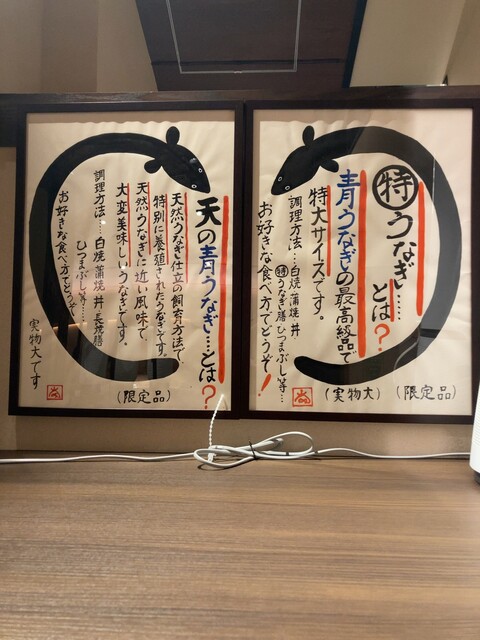 特うなぎ……
とは?
青うなぎの最高級品で
特大サイズです。
調理方法…白焼 蒲焼 丼
特うなぎ膳 ひつまぶし等…
お好きな食べ方でどうぞ!
(実物大) (限定品)
天の青うなぎ……とは?
天然うなぎ仕立の飼育方法で
特別に養殖されたうなぎです。
天然うなぎに近い風味で
大変美味しいうなぎです。
調理方法…白焼 蒲焼 丼
ひつまぶし等……
お好きな食べ方でどうぞ
実物大です
(限定品)